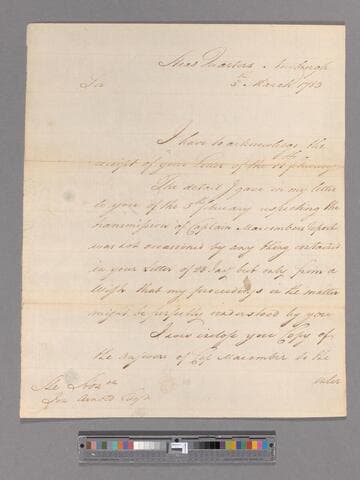 Head Quarters Newburgh
5th March 1783
Sir
I have to acknowledge the
receipt of your Letter of the
The detail I gave in my letter
to you of the 5th respecting the
transmission of Captain Macombers Report
was not occasioned by any thing contained
in your Letter of but only from a
Wish that my proceedings in the matter
might be perfectly understood by you
I now inclose you Copy of
the Answers of Macomber to the
inter
The Honble
Jona Arnold Esqr